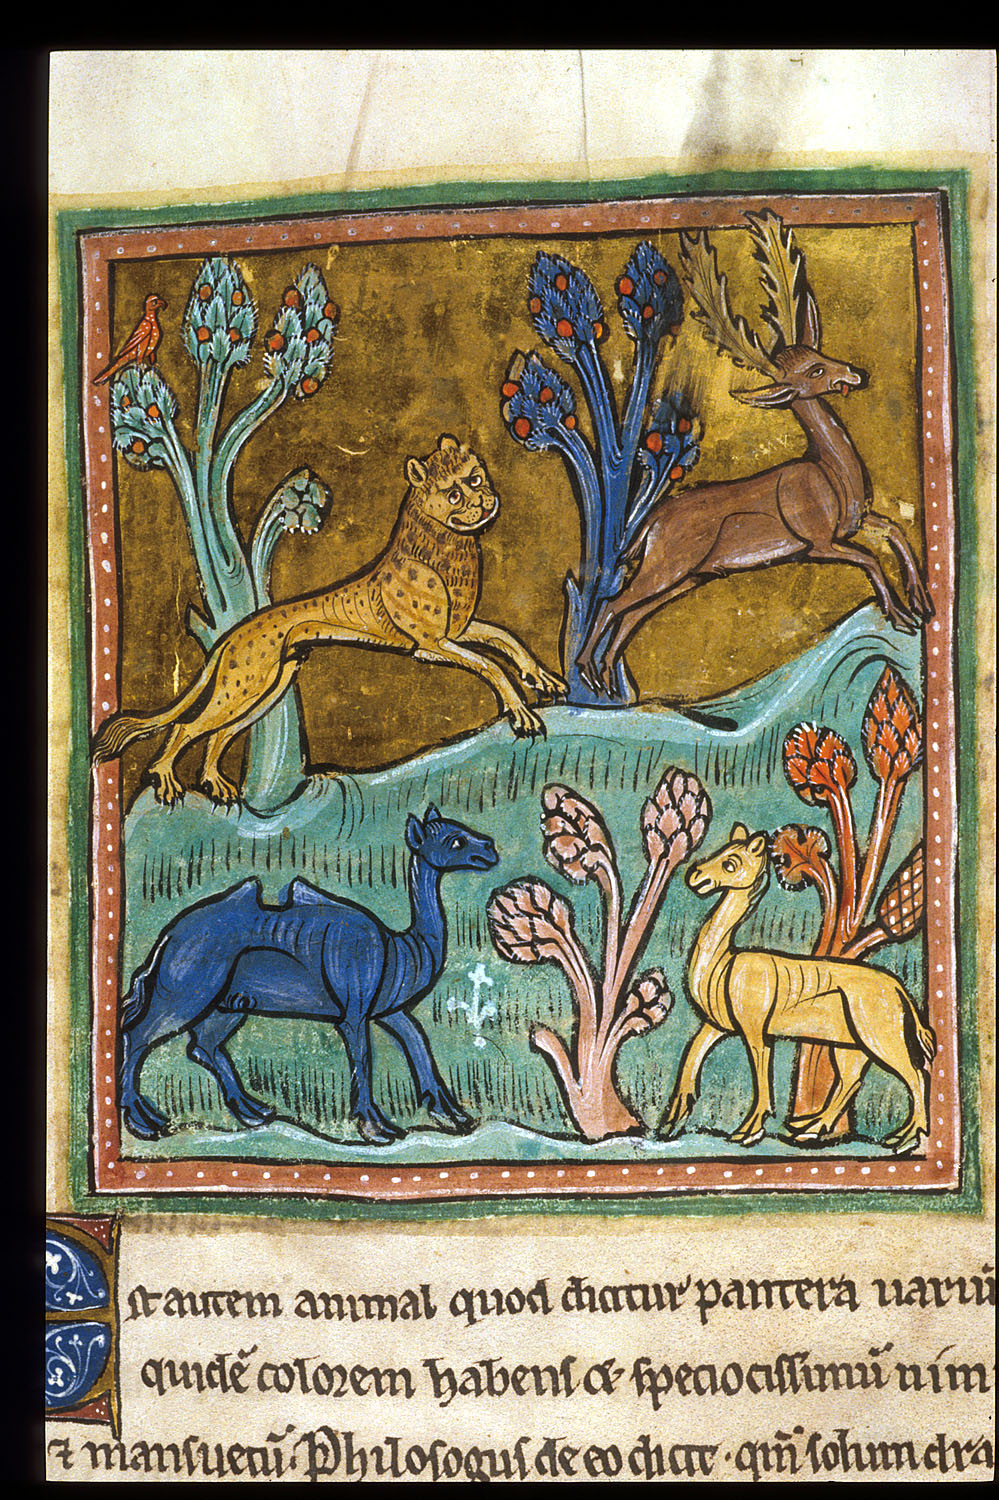 Est autem animal quod dicitur pantera uariū
quidē colorem habens & speciocissimū nim
⁊ mansuetū. Philosogus de eo dicit · qm̄ solum dra